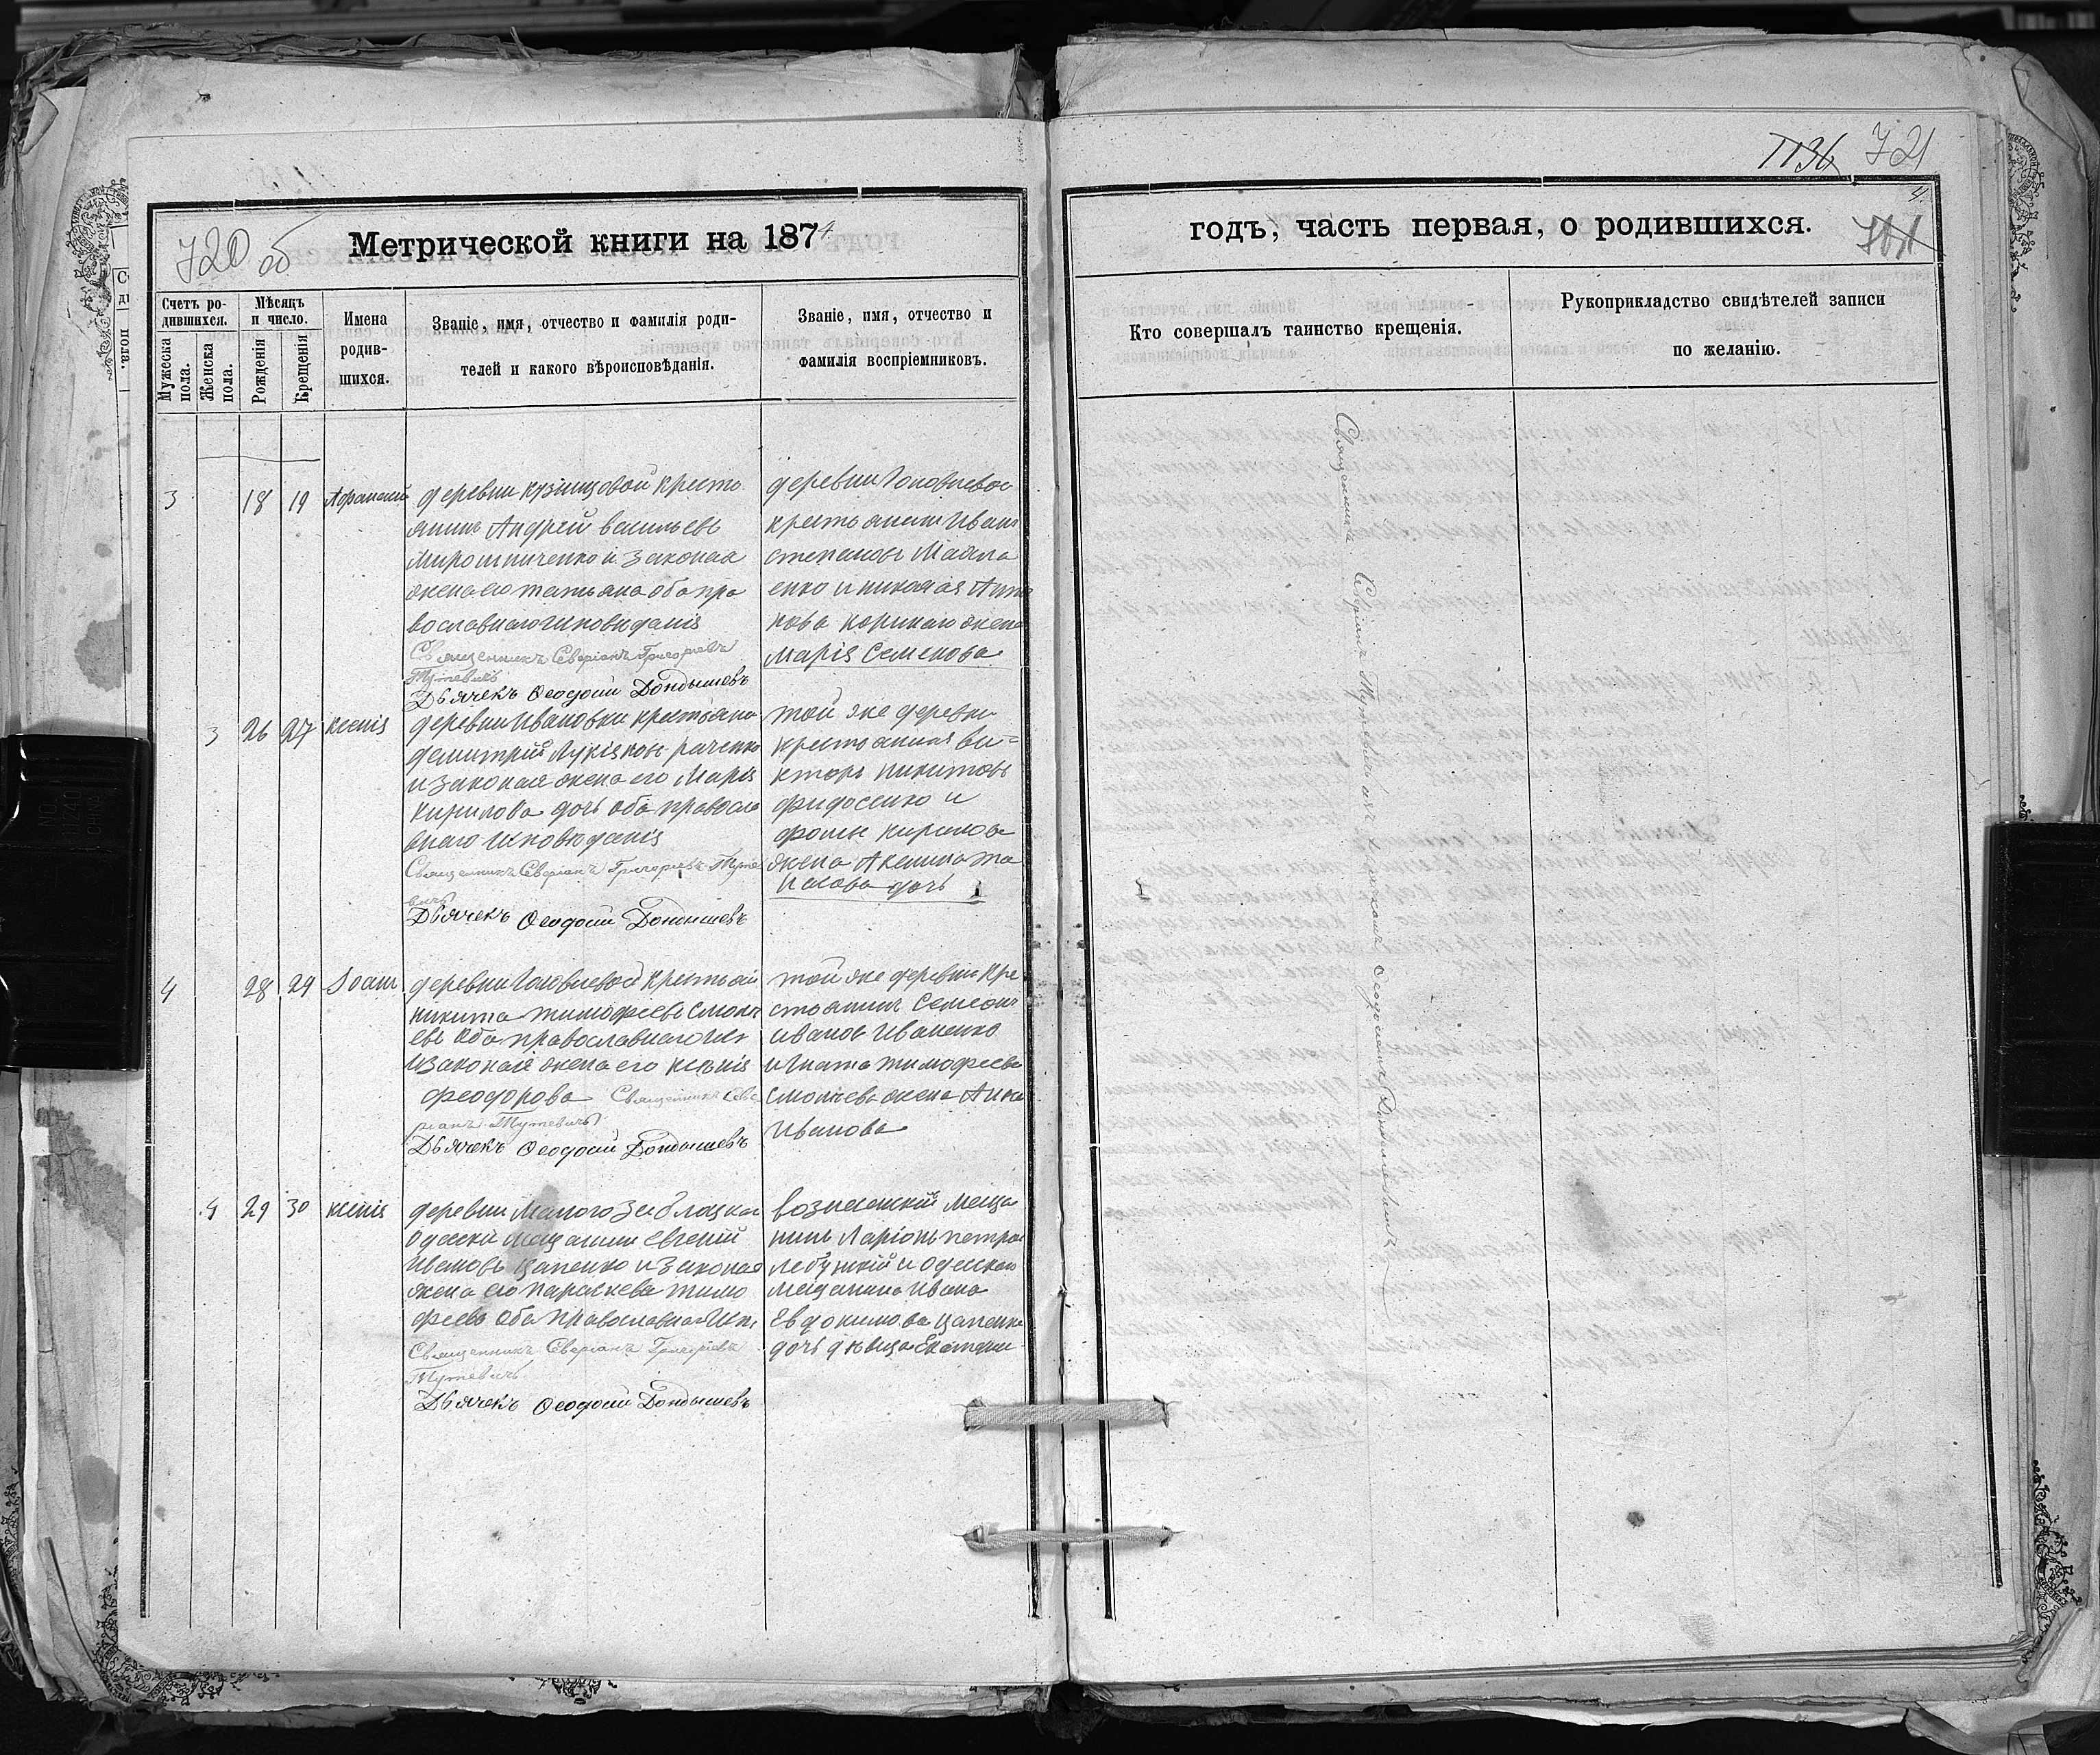 720 об
Метрической книги на 1874
Счетъ ро-
дившихся.
Мѣсяцъ
и число.
Мужеска
пола.
Женска
пола.
Рожденія
Крещенія
Имена
родив-
шихся.
Званіе, имя, отчество и фамилія роди-
телей и какого вѣроисповѣданія.
Званіе, имя, отчество и
фамилія воспріемниковъ.
3 18 19 Афанасий
деревни кузницовой кресто
янинъ Андрей васильевъ
Мирошниченко и законая
жена его татьяна оба пра
вославнаго исповѣданія
Священникъ Северіанъ Григоріевъ
Тутевичъ
Дьячекъ Ѳеодосій Бондышевъ
деревни Головневой
крестьянинъ Иванъ
степановъ
енко и николая
жена
Марія Семенова
3 26 27 ксенія
деревни Ивановки крестьяна
демитрій
и законая жена его Марія
Кирилова дочь оба правосла
внаго исповѣданія
Священникъ Северіанъ Григоріевъ Туте
вичъ
Дьячекъ Ѳеодосій Бондышевъ
той же деревни
крестьянина ви=
кторъ никитовъ
фидосенко и
фомы кирилова
жена Акелина
дочь
4 28 29 Іоанъ
деревни Головневой крестьян
никита тимофеевъ Смолч
евъ оба православнаго исп
и законая жена его ксенія
феодорова Священникъ Севе
ріанъ Тутевичъ
Дьячекъ Ѳеодосій Бондышевъ
той же деревни кре
стьянинъ Семеонъ
ивановъ Иваненко
игната тимофеева
Смолчева жена Анна
Иванова
4 29 30 ксенія
деревни Малого
Одескій мещанинъ евгений
Ивановъ Цапенко и законая
жена его параскева тимо
феева оба православнаго исп
Священникъ Северіанъ Григоріевъ
Тутевичъ
Дьячекъ Ѳеодосій Бондышевъ
вознесенскій меща
нинъ Ларіонъ петров
и одескаго
мещанина Ивана
Евдокимова цапенка
дочь девица Екатери
1136 721
4.
годъ, часть первая, о родившихся.
Кто совершалъ таинство крещенія.
Рукоприкладство свидѣтелей записи
по желанію.